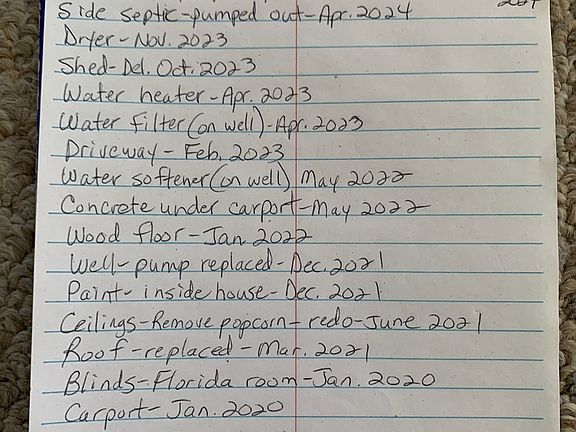 Side septic-pumped out-Apr. 2024
Dryer-Nov. 2023
Shed-Del. Oct. 2023
Water heater-Apr. 2023
Water filter(on well)-Apr. 2023
Driveway-Feb. 2023
Water softener(on well) May 2022
Concrete under carport-May 2022
Wood floor-Jan. 2022
Well-pump replaced-Dec. 2021
Paint-inside house-Dec. 2021
Ceilings-Remove popcorn-redo-June 2021
Roof-replaced-Mar. 2021
Blinds-Florida room-Jan. 2020
Carport-Jan. 2020